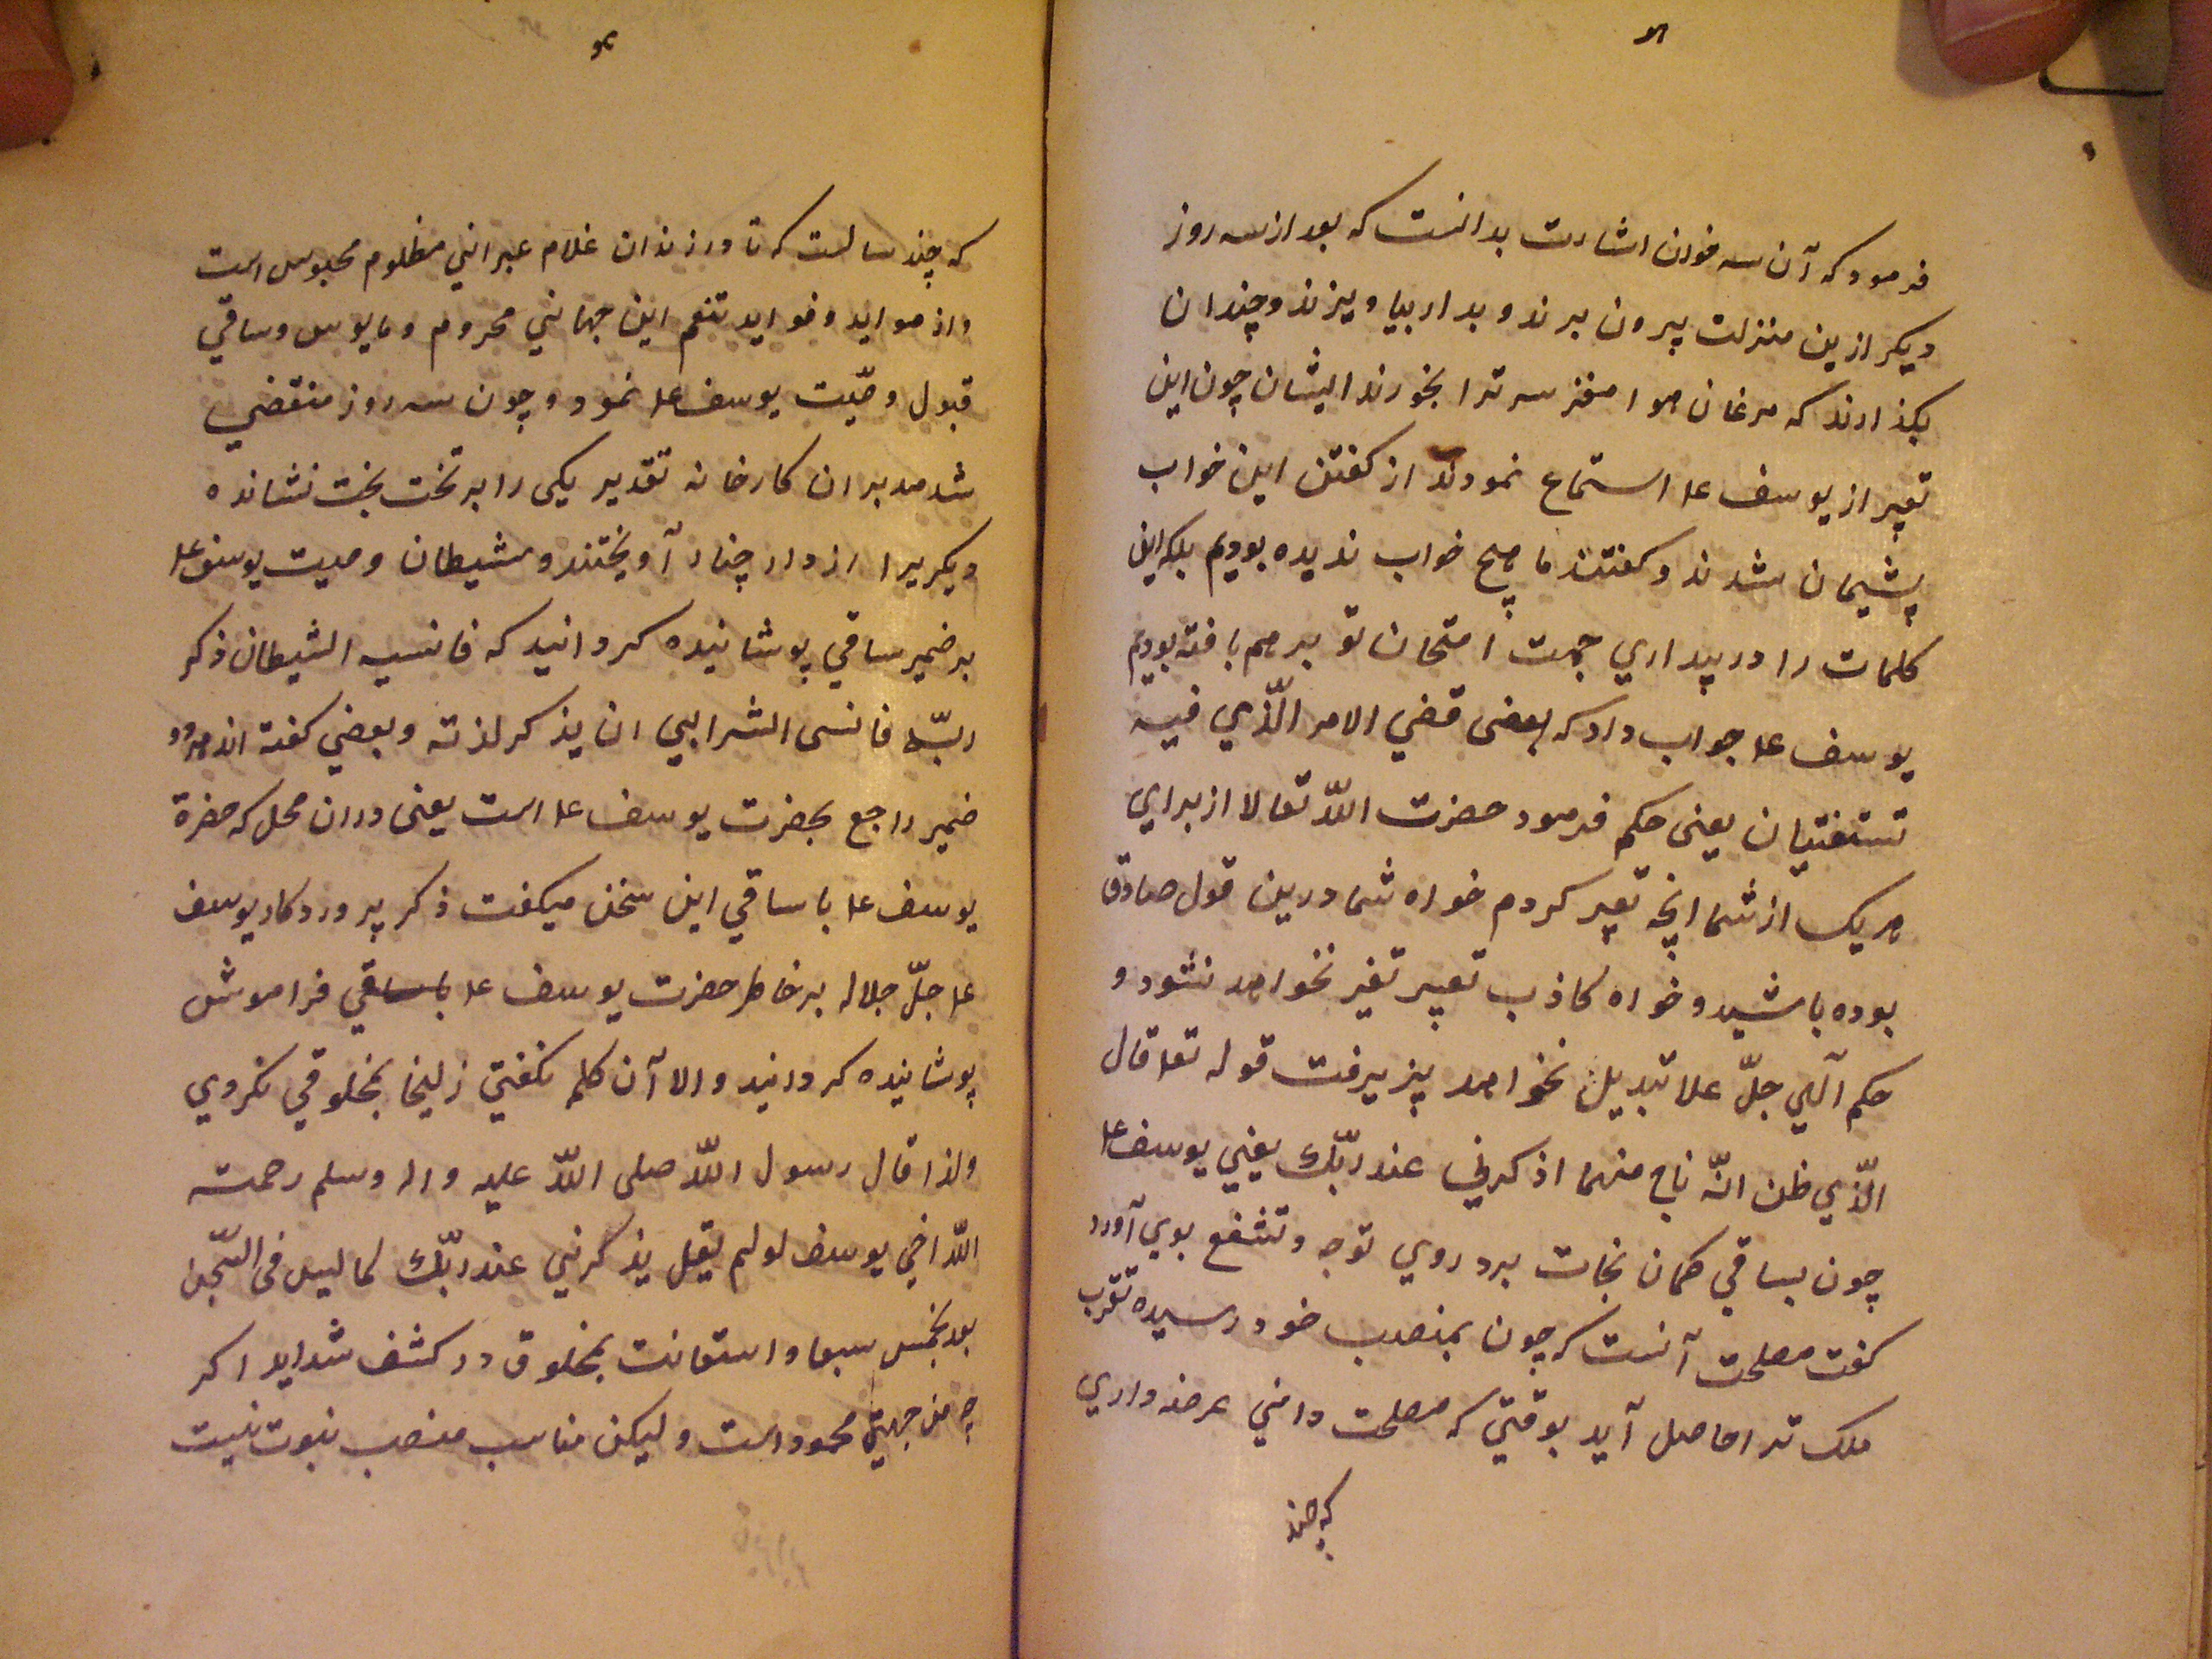 فرمود که آن سه خون اشارت بدانست که بعد از سه روز
دیکر ازین منزلت بیرون برند و بدار بیاویزند و چندان
بکذارند که مرغان هوا مغز سر ترا بخورند ایشان چون این
تعبیر از یوسف ع استماع نمودند از کفتن این خواب
پشیمان شدند و کفتند ما هیچ خواب ندیده بودیم بلکه این
کلمات را در بیداری جهت امتحان تو بر هم بافته بودیم
یوسف ع جواب داد که بعضی قضی الامر الّذی فیه
تستفتیان یعنی حکم فرمود حضرت اللّه تعالا از برای
هر یک از شما انچه تعبیر کردم خواه شما درین قول صادق
بوده باشید و خواه کاذب تعبیر تغیر نخواهد نشود و
حکم آلهی جلّ علا تبدیل نخواهد پزیرفت قوله تعا قال
الّذی ظن انّه ناج منهما اذکرنی عند ربّک یعنی یوسف ع
چون بساقی کمان نجات برد روی توجه و تشفع بوی آورد
کفت مصلحت آنست که چون بمنصب خود رسیده تقرب
ملک ترا حاصل آید بوقتی که مصلحت دانی عرضه داری
که چند
که چند سالست که تا در زندان غلام عبرانی مظلوم محبوس است
و از مواید و فواید تنعم این جهانی محروم و مایوس و ساقی
قبول وصّیت یوسف ع نمود و چون سه روز منقضی
شد مدبران کارخانه تقدیر یکی را بر تخت بخت نشانده
دیکریرا از دار چنار آویختند و شیطان وصیت یوسف ع
بر ضمیر ساقی پوشانیده کردانید که فانسیه الشیطان ذکر
ربّه فانسی الشرابی ان یذکر لذته و بعضی کفته اند هر دو
ضمیر راجع بحضرت یوسف ع است یعنی دران محل که حضرة
یوسف ع با ساقی این سخن میکفت ذکر پروردکار یوسف
ع جلّ جلاله بر خاطر حضرت یوسف ع با ساقی فراموش
پوشانیده کردانید و الا آن کلمه نکفتی زلیخا بخلوقی نکردی
ولذا قال رسول اللّه صلی اللّه علیه واله وسلم رحمت
اللّه اخی یوسف لو لم یقل یذکرنی عند ربّک لما لیس فی السّجن
بعد بخمس سبعا و استعانت بمخلوق در کشف شداید اکر
چه من جهتی محمود است و لیکن مناسب منصب نبوت نیست